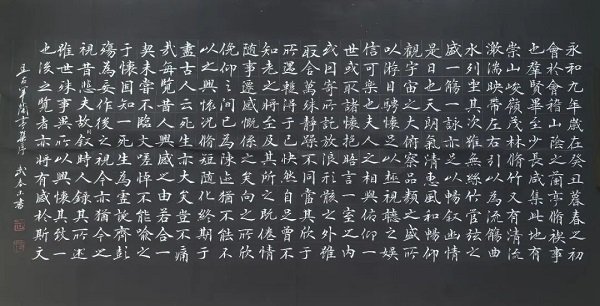 永和九年歲在癸丑暮春之初
會於會稽山陰之蘭亭脩禊事
也羣賢畢至少長咸集此地有
崇山峻嶺茂林脩竹又有清流
激湍映帶左右引以為流觴曲
水列坐其次雖無絲竹管弦之
盛一觴一詠亦足以暢叙幽情
是日也天朗氣清惠風和暢仰
觀宇宙之大俯察品類之盛所
以遊目騁懷足以極視聽之娛
信可樂也夫人之相與俯仰一
世或取諸懷抱晤言一室之內
或因寄所託放浪形骸之外雖
取舍萬殊靜躁不同當其欣於
所遇暫得於己快然自足曾不
知老之將至及其所之既倦情
隨事遷感慨係之矣向之所欣
俛仰之間已為陳迹猶不能不
以之興懷況脩短隨化終期于
盡古人云死生亦大矣豈不痛
哉每覽昔人興感之由若合一
契未嘗不臨文嗟悼不能喻之
于懷固知一死生為虛誕齊彭
殤為妄作後之視今亦猶今之
視昔悲夫故列叙時人錄其所述
雖世殊事異所以興懷其致一
也後之覽者亦將有感於斯文
王右軍蘭亭集序